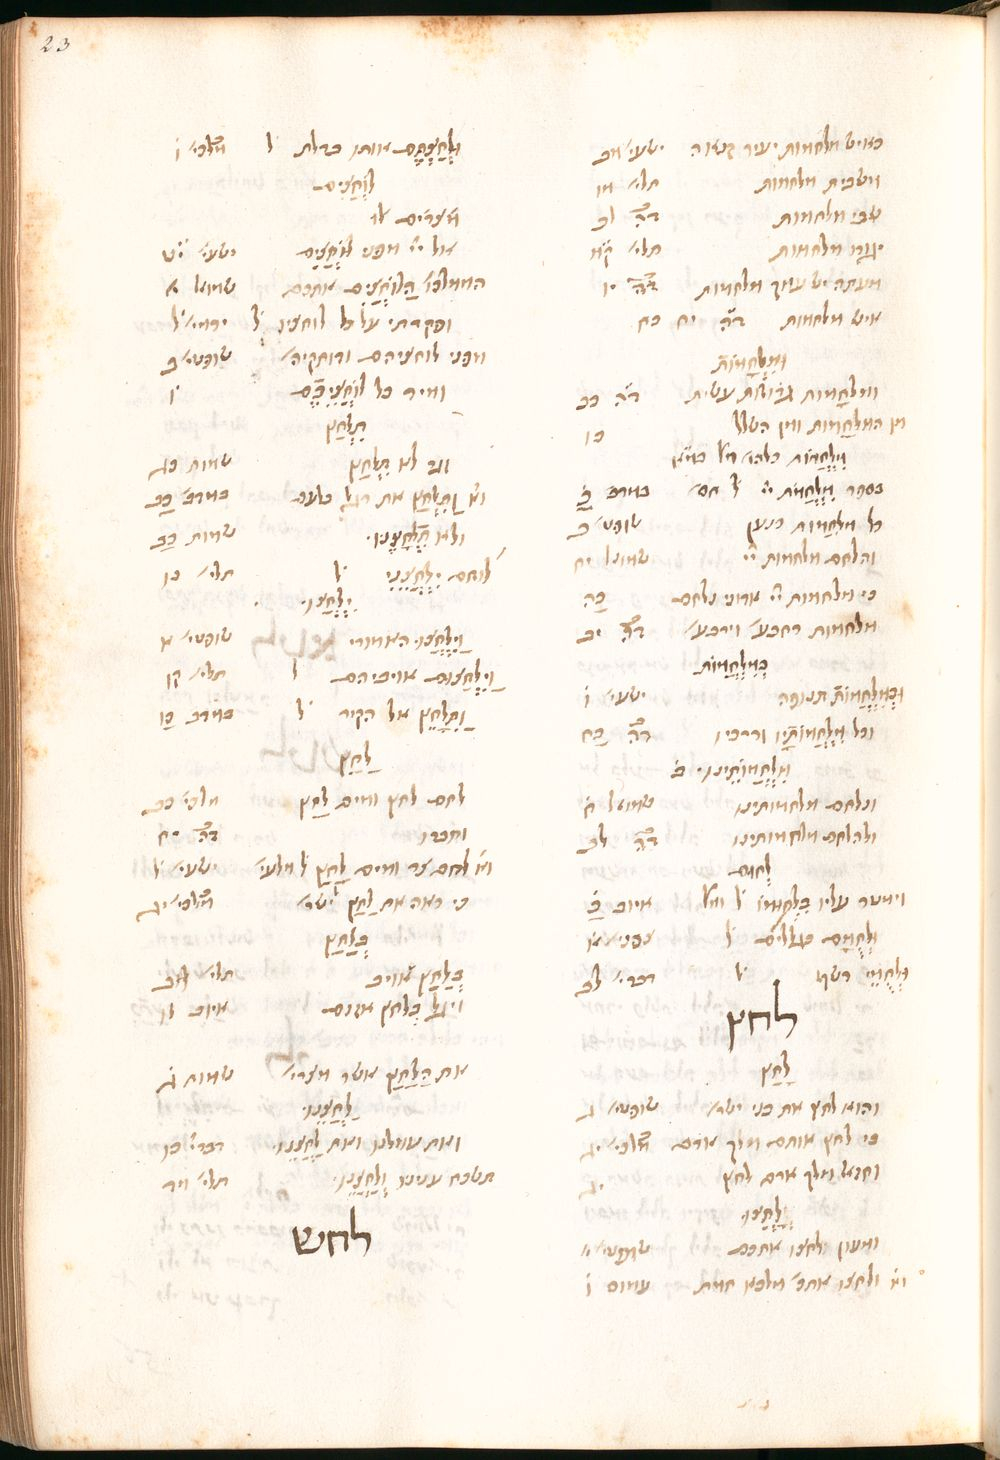 23
כאיש מלחמות יעיר קנאה ישעי׳ מב
משבית מלחמות תלי׳ מו
אבי מלחמות דה׳ לב
יגורו מלחמות תלי׳ קמ
מעתה יש עמך מלחמות דה׳ יו
איש מלחמות דה׳ יח כח
וּמִלְחָמוֹת
ומלחמות גדולות עשית דה׳ כב
מן המלחמות ומן השלל כו
מִלְחֲמוֹת
בספר מִלְחֲמֹת יי׳ ל׳ חס׳ במדב׳ כ
כל מלחמות כנען שופטי׳ ג
והלחם מלחמות יי׳ שמואל יח
כי מלחמות יי׳ אדוני נלחם כה
מלחמות רחבע׳ וירבע׳ דה׳ יב
בְּמִלְחֲמוֹת
וּבְמִלְחֲמוֹת תנופה ישעי׳ ל
וכל מִלְחֲמוֹתָיו ודרכיו דה׳ כח
מִלְחֲמוֹתֵינוּ ב
ונלחם מלחמותינו שמואל ח
ולהלחם מלחמותינו דה׳ לב
לְחוּם
וימטר עלימו בִּלְחוּמוֹ ל׳ ומל׳ איוב כ
וּלְחֻמָם כגללים ל׳ צפני׳ א
וּלְחֻמֵי רשף ל׳ דברי׳ לב
לחץ
לָחַץ
והוא לחץ את בני ישרא׳ שופטי׳ ד
כי לחץ אותם מלך ארם מלכי׳ יג
וחזאל מלך ארם לחץ יג
לָחֲצוּ
ומעון לחצו אתכם שופטי׳ י
ולחצו אתכ׳ מלבא חמת עמוס ו
וּלְחַצְתֶּם אותו בדלת ל׳ מלכי׳ ו
לוֹחֲצִים
אל יי׳ מפני לוֹחֲצִים ישעי׳ יט
הממלכו׳ הַלּוֹחֲצִים אתכם שמואל י
ופקדתי על כל לוחציו ל׳ ירמי׳ ל
מפני לוחציהם ודוחקיה׳ שופטי׳ ב
ומיד כל לוֹחֲצֵיכֶם ו
תִלְחַץ
וגר לא תִלְחָץ שמות כג
וַתִּלְחַץ את רגל בלעם במדב׳ כב
ולא תִלְחָצֶנּוּ שמות כב
לוחם יִלְחָצֵנִי ל׳ תלי׳ נו
יִלְחֲצוּ
וַיִּלְחֲצוּ האמורי שופטי׳ א
וַיִּלְחָצוּם אויביהם ל׳ תלי׳ קו
וַתִּלָּחֵץ אל הקיר ל׳ במדב׳ כב
לַחַץ
לחם לחץ ומים לַחַץ מלכי׳ כב
וחברו דה׳ יח
לחם צר ומים לַחַץ ל׳ מלעי׳ ישעי׳ ל
כי ראה את לַחַץ ישר׳ מלכי׳ יג
בְּלַחַץ
בְּלַחַץ אויב תלי׳ מב
ויגל בַּלַּחַץ אזנם איוב לו
את הַלַּחַץ אשר מצרי׳ שמות ג
לַחֲצֵנוּ
ואת עמלנו ואת לַחֲצֵנוּ דברי׳ כו
תשכח ענינו וְלַחֲצֵנוּ תלי׳ מד
לחש